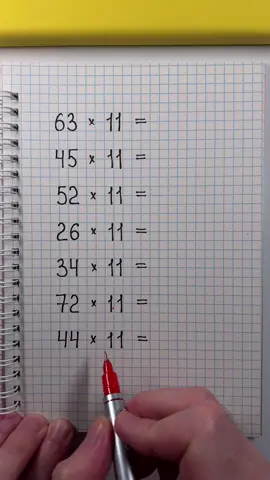 63 × 11 =
45 × 11 =
52 × 11 =
26 × 11 =
34 × 11 =
72 × 11 =
44 × 11 =